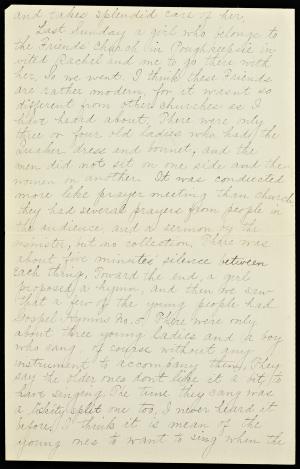 and takes splendid care of her.
Last Sunday a girl who belongs to
the Friends church in Poughkeepsie in-
vited Rachel and me to go there with
her, so we went. I think these Friends
are rather modern, for it wasnt so
different from other churches as I
have heard about. There were only
three or four old ladies who had the
Quaker dress and bonnet, and the
men did not sit on one side and the
women on another. It was conducted
more like prayer meeting than church,
they had several prayers from people in
the audience, and a sermon by the
minister, but no collection. There was
about five minutes silence between
each thing. Toward the end, a girl
proposed a hymn, and then we saw
that a few of the young people had
Gospel Hymns No. 5. There were only
about three young ladies and a boy
who sang, of course without any
instrument to accompany them. They
say the older ones dont like it a bit, to
have singing. The tune they sang was
a split one too, I never heard it
before. I think it is mean of the
young ones to want to sing when the